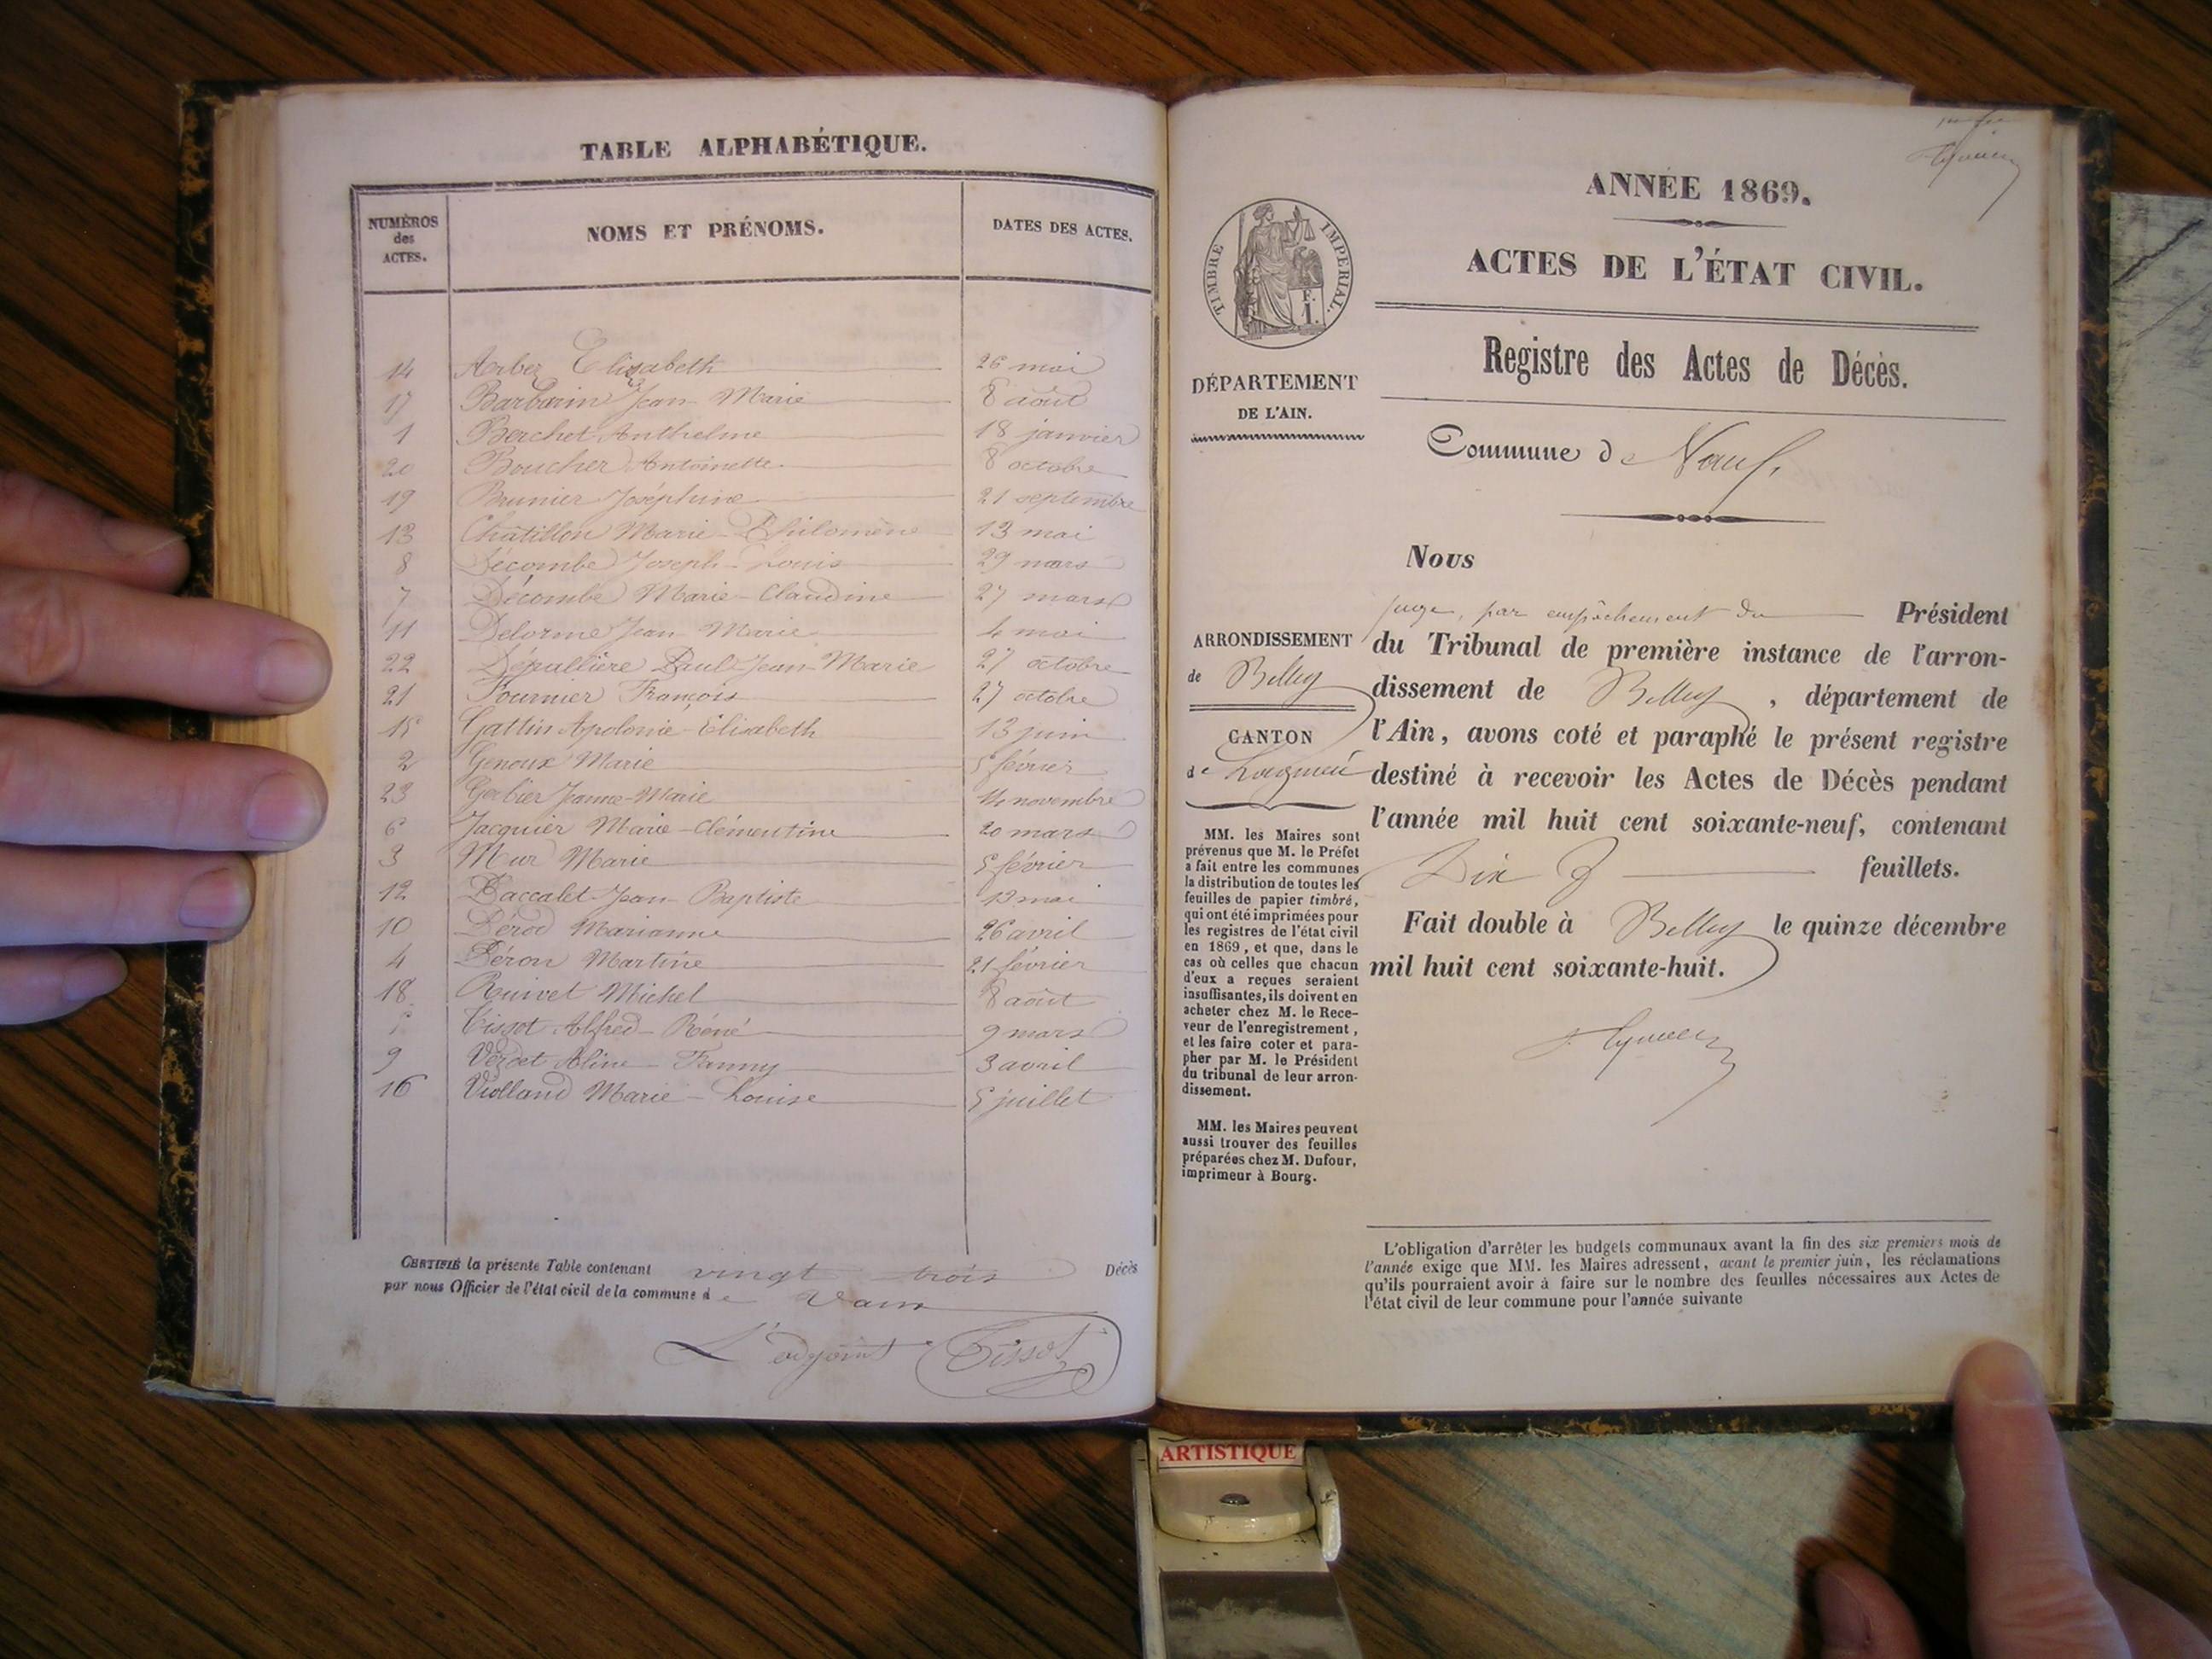 TABLE ALPHABÉTIQUE.
NUMÉROS des ACTES. NOMS ET PRÉNOMS. DATES DES ACTES.
14 Arbez Elisabeth 26 mai
17 Barbarin Jean Marie 8 août
1 Berchet Anthelme 18 janvier
20 Boucher Antoinette 8 octobre
19 Brunier Joséphine 21 septembre
13 Châtillon Marie-Philomène 13 mai
8 Décombe Joseph-Louis 29 mars
7 Décombe Marie-Claudine 27 mars
11 Delorme Jean Marie 4 mai
22 Dépallière Paul-Jean-Marie 27 octobre
21 Fournier François 27 octobre
15 Gattin Apolonie-Elisabeth 13 juin
2 Genoux Marie 5 février
23 Gerbier Jeanne-Marie 14 novembre
6 Jacquier Marie-Clémentine 20 mars
3 Mur Marie 5 février
12 Paccalet Jean Baptiste 13 mai
10 Pérod Marianne 26 avril
4 Péron Martine 21 février
18 Ruivet Michel 8 août
Tissot Alfred-Réné 9 mars
9 Verdet Aline-Fanny 3 avril
16 Violland Marie-Louise 5 juillet
CERTIFIÉ la présente Table contenant vingt trois Décès
par nous Officier de l'état civil de la commune de Vaux
L'adjoint Tissot
ANNÉE 1869.
ACTES DE L'ÉTAT CIVIL.
TIMBRE IMPERIAL.
1 F.
Registre des Actes de Décès.
DÉPARTEMENT
DE L'AIN.
Commune de Vaux.
Nous
juge, par empêchement du Président
du Tribunal de première instance de l'arron-
dissement de Belley, département de
l'Ain, avons coté et paraphé le présent registre
destiné à recevoir les Actes de Décès pendant
l'année mil huit cent soixante-neuf, contenant
Dix feuillets.
Fait double à Belley le quinze décembre
mil huit cent soixante-huit.
ARRONDISSEMENT
de Belley
CANTON
de Lagnieu
MM. les Maires sont
prévenus que M. le Préfet
a fait entre les communes
la distribution de toutes les
feuilles de papier timbré,
qui ont été imprimées pour
les registres de l'état civil
en 1869, et que, dans le
cas où celles que chacun
d'eux a reçues seraient
insuffisantes, ils doivent en
acheter chez M. le Rece-
veur de l'enregistrement,
et les faire coter et para-
pher par M. le Président
du tribunal de leur arron-
dissement.
MM. les Maires peuvent
aussi trouver des feuilles
préparées chez M. Dufour,
imprimeur à Bourg.
L'obligation d'arrêter les budgets communaux avant la fin des six premiers mois de
l'année exige que MM. les Maires adressent, avant le premier juin, les réclamations
qu'ils pourraient avoir à faire sur le nombre des feuilles nécessaires aux Actes de
l'état civil de leur commune pour l'année suivante
ARTISTIQUE